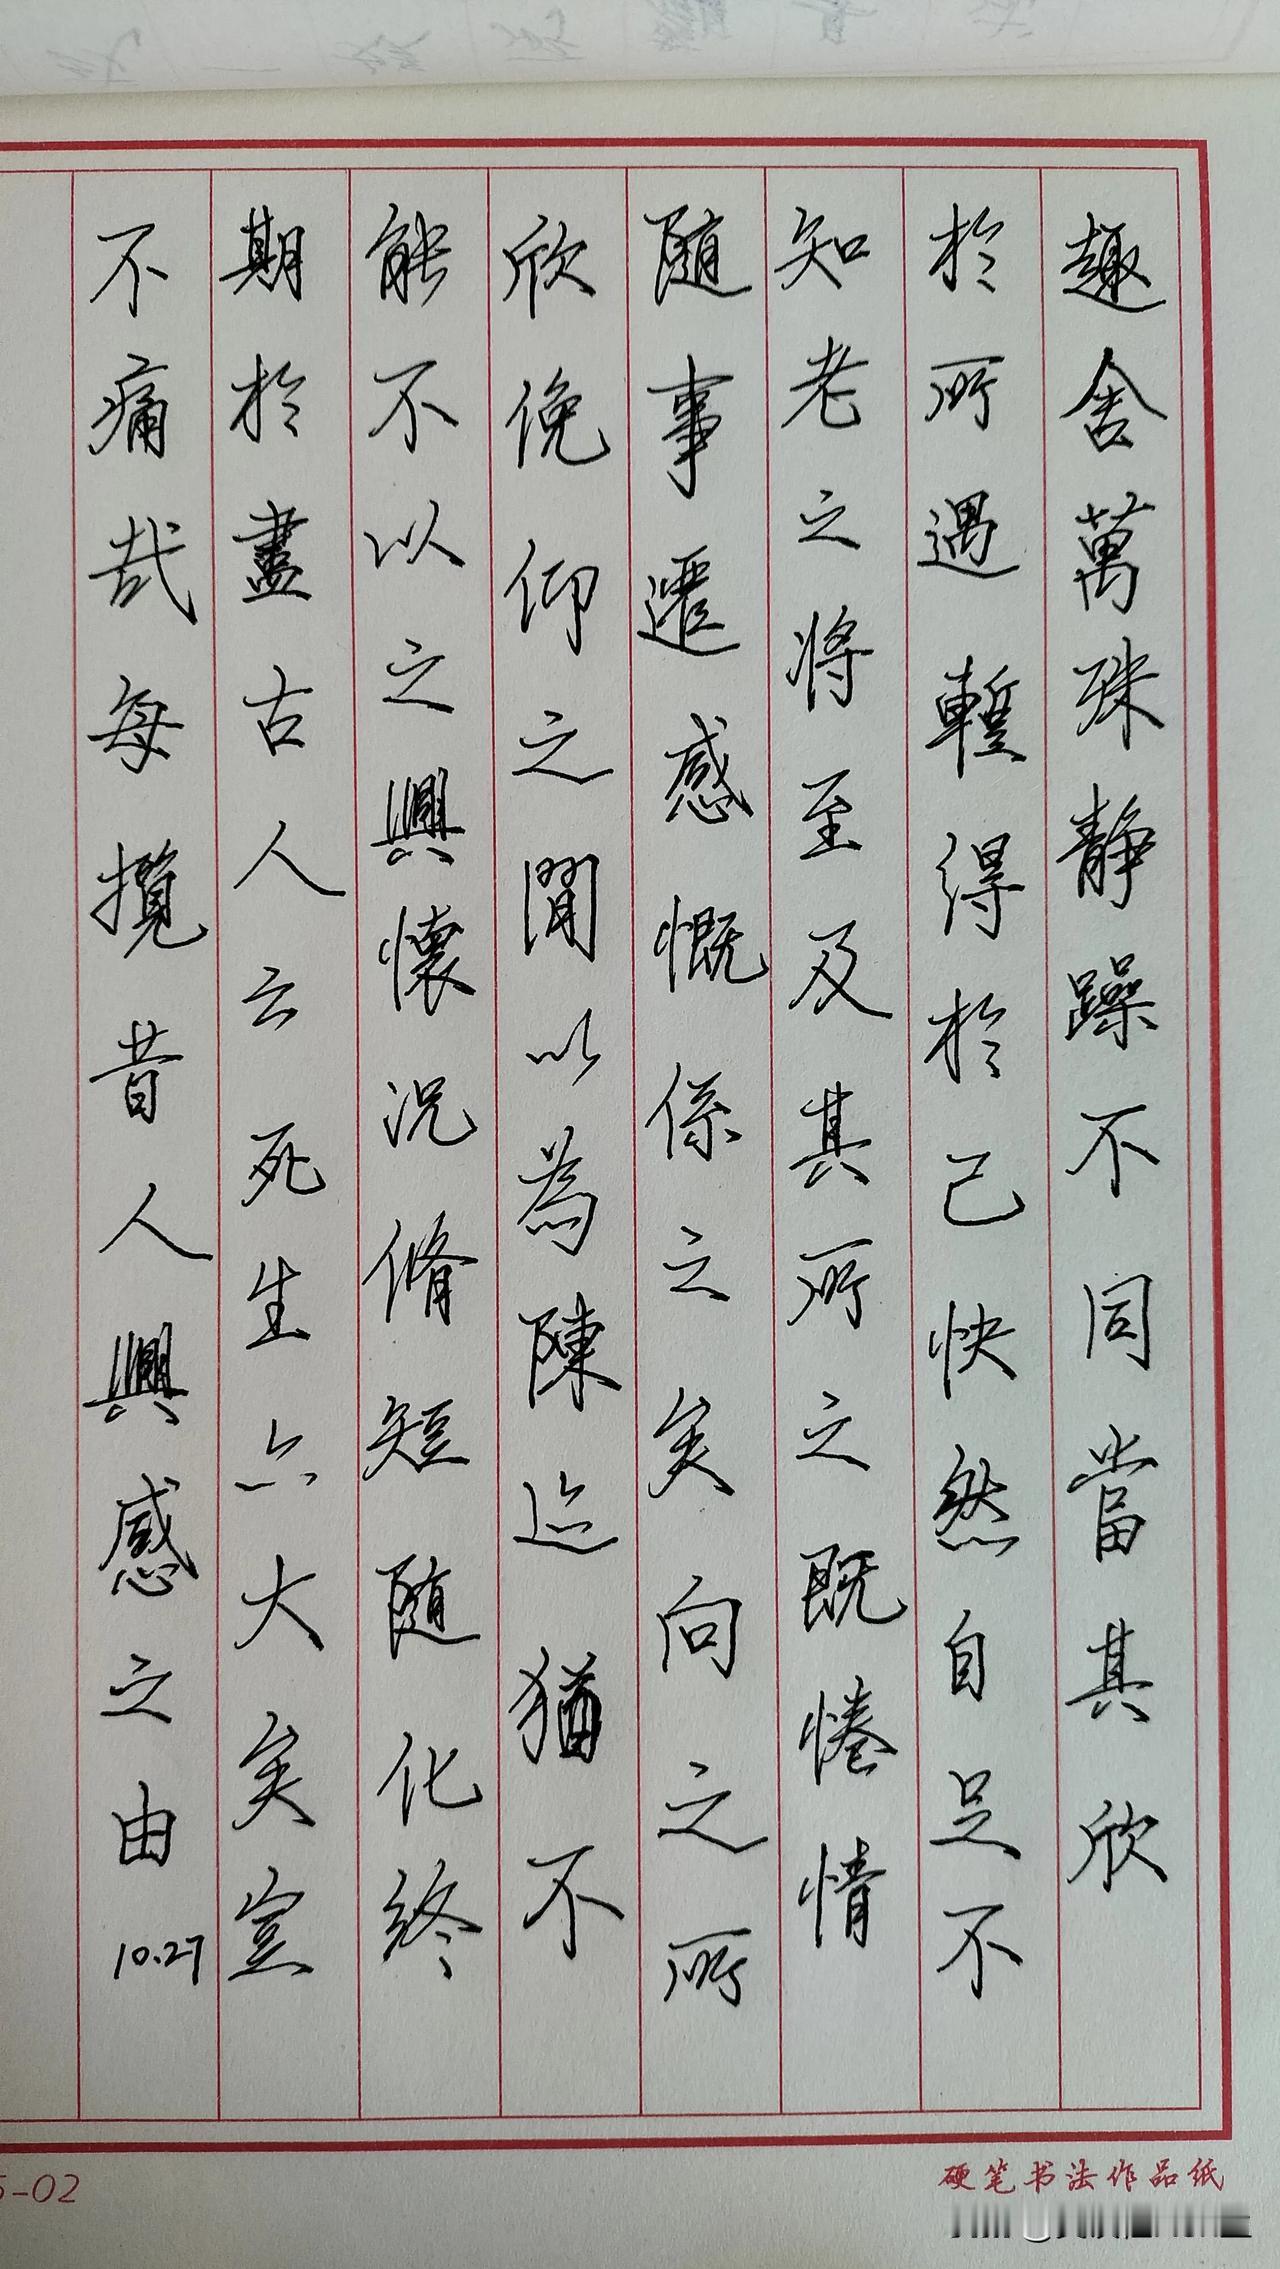 趣舍萬殊静躁不同當其欣
於所遇暫得於己快然自足不
知老之将至及其所之既惓情
随事遷感慨係之矣向之所
欣俛仰之閒以為陳迹猶不
能不以之興懷況脩短随化終
期於盡古人云死生亦大矣豈
不痛哉每攬昔人興感之由
10.27
5-02
硬笔书法作品纸